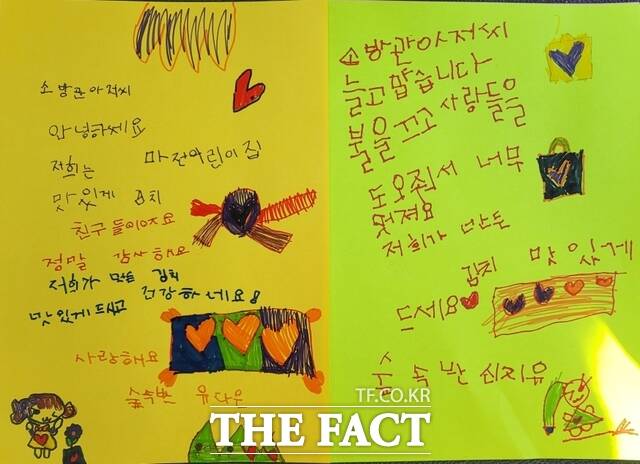 소방관아저씨
안녕하세요
저희는 마전어린이집
맛있게 김치
친구들이에요
정말 감사해요
저희가 만든 김치
맛있게 드시고 건강하세요!
사랑해요
숲속반 유다은
소방관아저씨
늘고맙습니다
불을 끄고 사람들을
도와줘서 너무
멋져요
저희가 만든
김치 맛있게
드세요
숲속반 신지유
TF.CO.KR
THE FACT